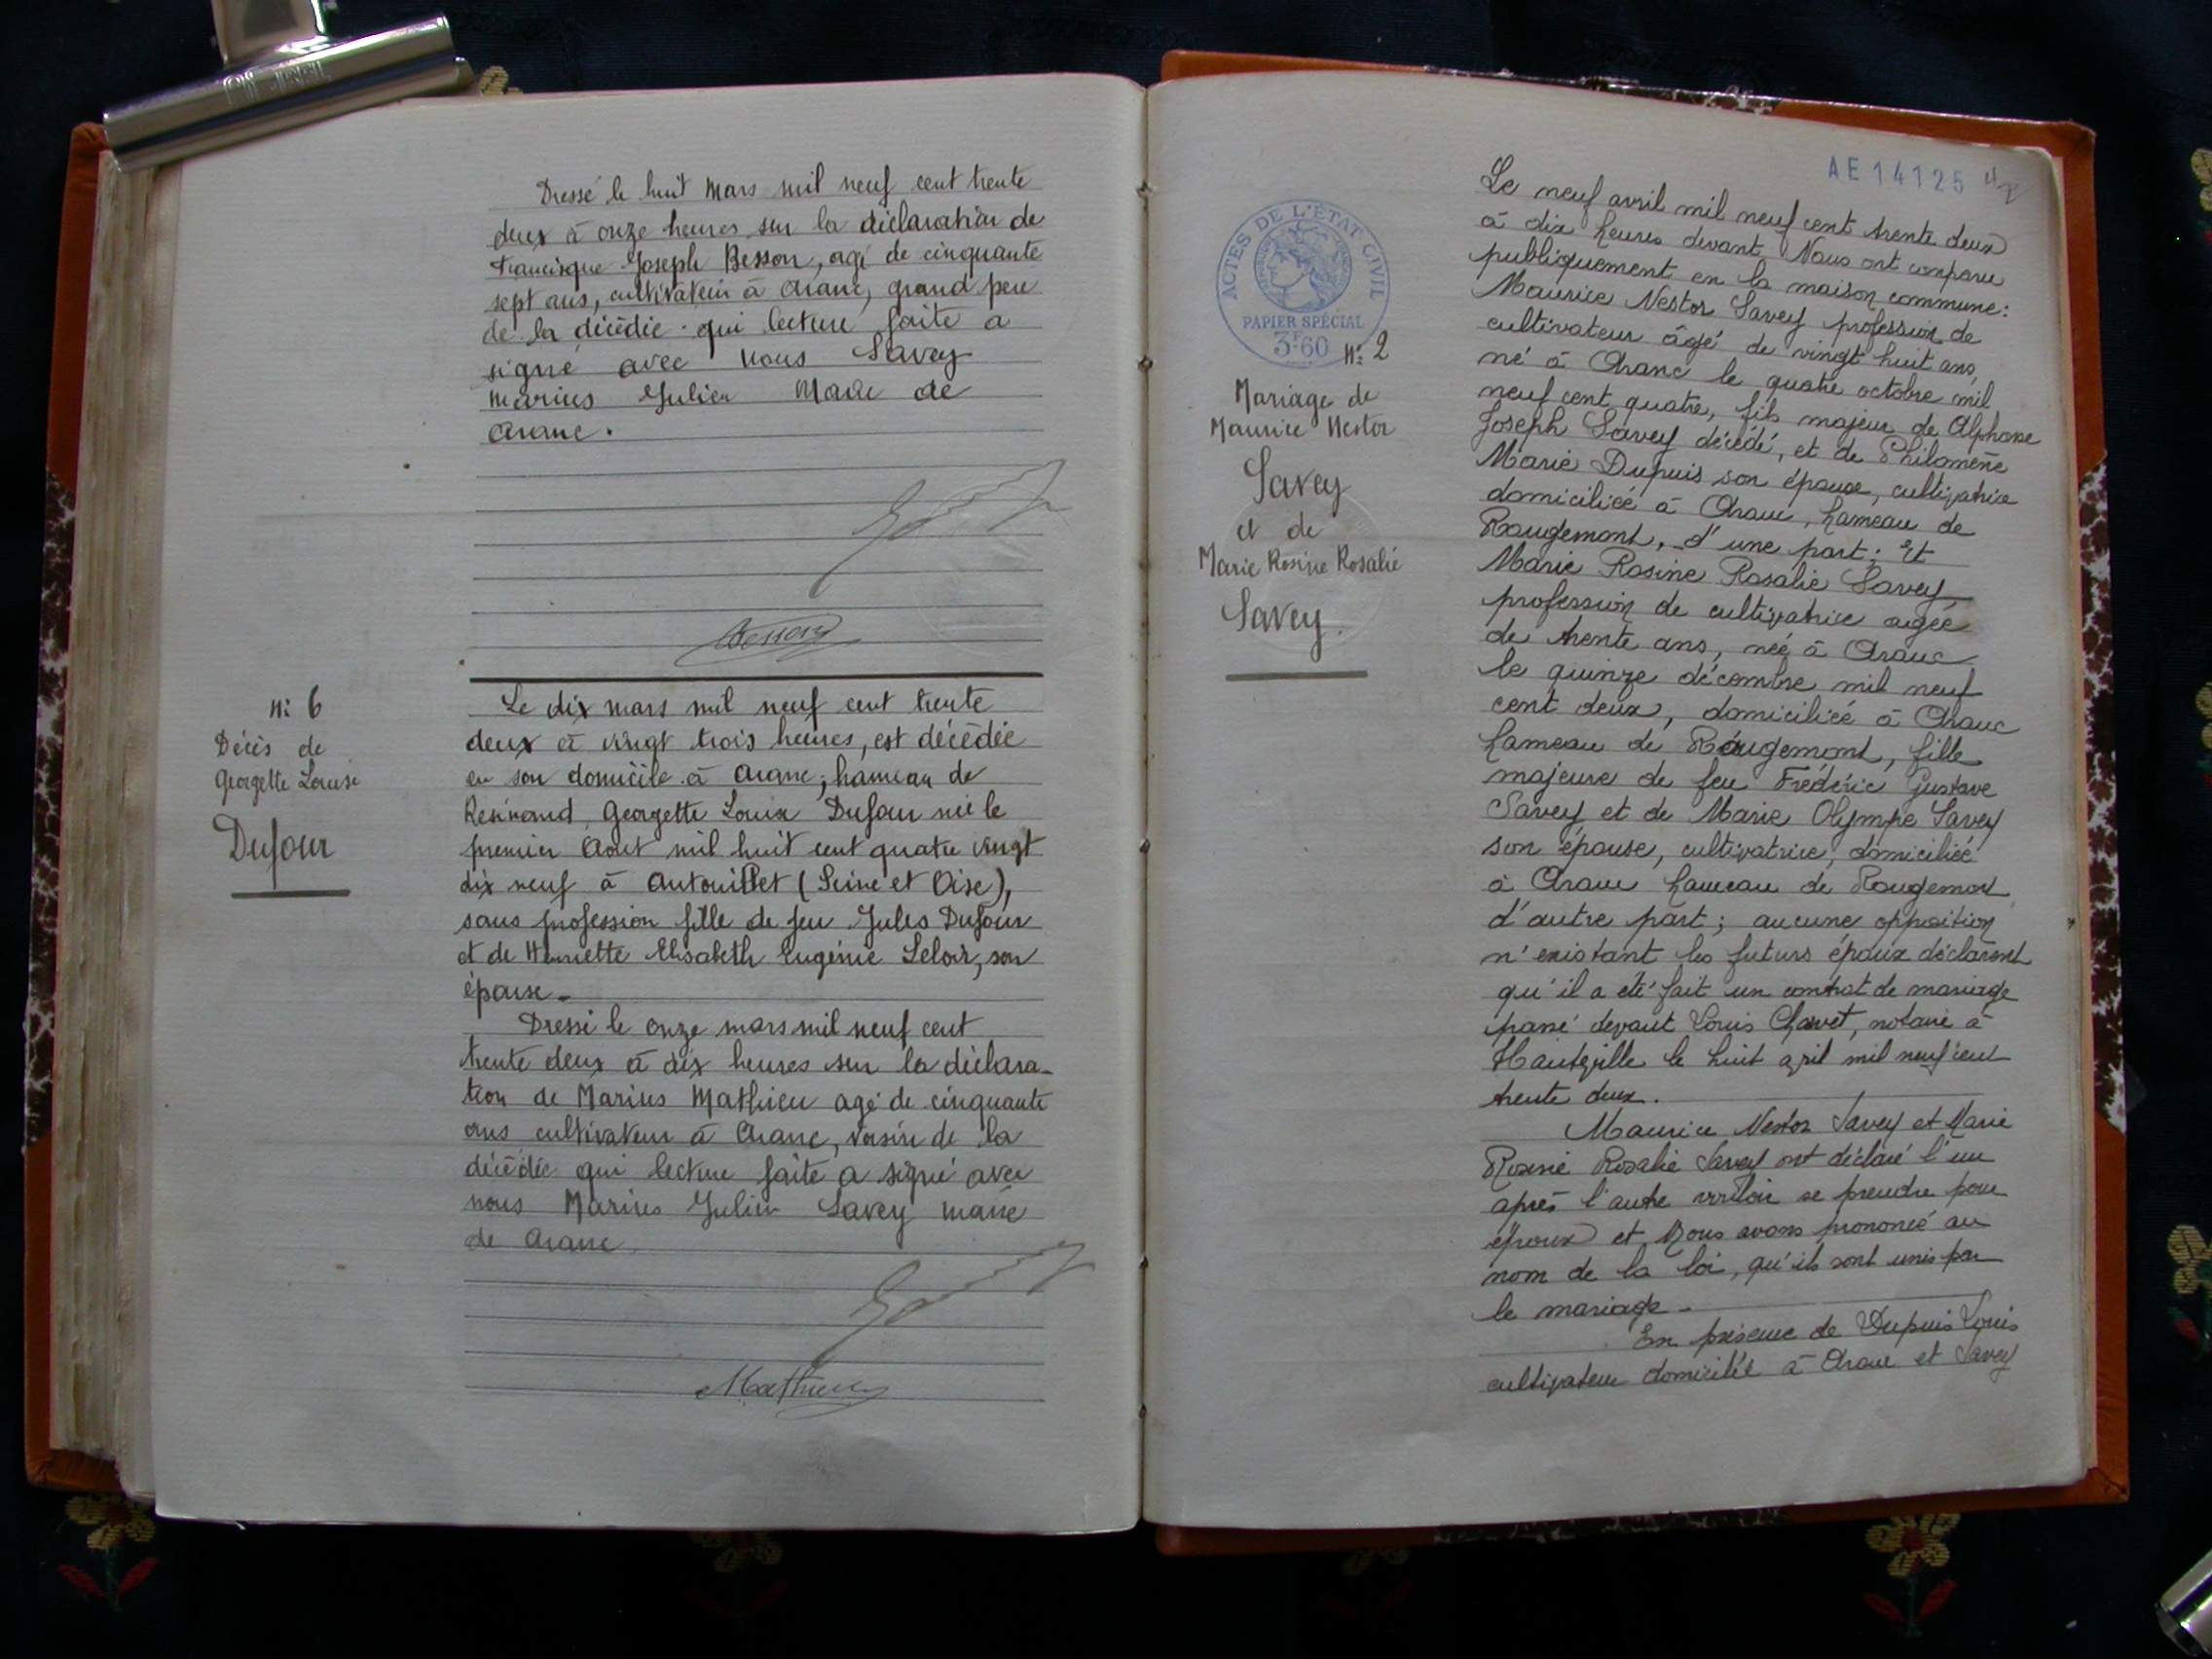 Dressé le huit Mars mil neuf cent trente
deux à onze heures sur la déclaration de
Francisque Joseph Besson, agé de cinquante
sept ans, cultivateur à Aranc, grand pere
de la décédée qui lecture faite a
signé avec nous Savey
Marius Julien Maire de
Aranc.
Besson
N: 6
Décès de
Georgette Louise
Dufour
Le dix mars mil neuf cent trente
deux à vingt trois heures, est décédée
en son domicile à Aranc, hameau de
Resinand, Georgette Louise Dufour née le
premier Aout mil huit cent quatre vingt
dix neuf à Autouillet (Seine et Oise),
sans profession fille de feu Jules Dufour
et de Henriette Elisabeth Eugénie Leloir, son
épouse.
Dressé le onze mars mil neuf cent
trente deux à dix heures sur la déclara-
tion de Marius Mathieu agé de cinquante
ans cultivateur à Aranc, voisin de la
décédée qui lecture faite a signé avec
nous Marius Julien Savey maire
de Aranc.
Mathieu
AE 14125
ACTES DE L'ÉTAT CIVIL
PAPIER SPÉCIAL
3F60
N: 2
Mariage de
Maurice Nestor
Savey
et de
Marie Rosine Rosalie
Savey.
Le neuf avril mil neuf cent trente deux
à dix heures devant Nous ont comparu
publiquement en la maison commune:
Maurice Nestor Savey profession de
cultivateur âgé de vingt huit ans,
né à Aranc le quatre octobre mil
neuf cent quatre, fils majeur de Alphonse
Joseph Savey décédé, et de Philomène
Marie Dupuis son épouse, cultivatrice
domiciliée à Aranc, hameau de
Rougemont, d'une part; Et
Marie Rosine Rosalie Savey
profession de cultivatrice agée
de trente ans, née à Aranc
le quinze décembre mil neuf
cent deux, domiciliée à Aranc
hameau de Rougemont, fille
majeure de feu Frédéric Gustave
Savey et de Marie Olympe Savey
son épouse, cultivatrice, domiciliée
à Aranc hameau de Rougemont
d'autre part; aucune opposition
n'existant les futurs époux déclarent
qu'il a été fait un contrat de mariage
passé devant Louis Chavet, notaire à
Hauteville le huit avril mil neuf cent
trente deux.
Maurice Nestor Savey et Marie
Rosine Rosalie Savey ont déclaré l'un
après l'autre vouloir se prendre pour
époux et Nous avons prononcé au
nom de la loi, qu'ils sont unis par
le mariage.
En présence de Dupuis Louis
cultivateur domicilié à Aranc et Savey